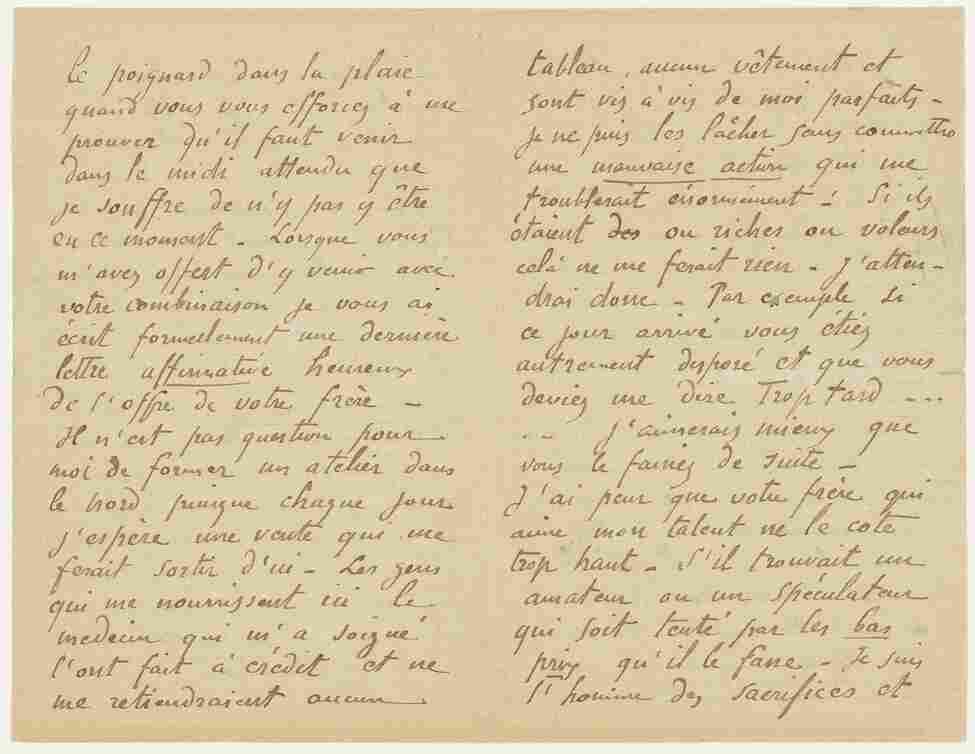 le poignard dans la plaie
quand vous vous efforcez à me
prouver qu'il faut venir
dans le midi attendu que
je souffre de n'y pas y être
en ce moment - Lorsque vous
m'avez offert d'y venir avec
votre combinaison je vous ai
écrit formellement une dernière
lettre affirmative heureux
de l'offre de votre frère -
Il n'est pas question pour
moi de former un atelier dans
le nord puisque chaque jour
j'espère une vente qui me
ferait sortir d'ici - Les gens
qui me nourrissent ici le
medecin qui m'a soigné
l'ont fait à crédit et ne
me retiendraient aucun
tableau, aucun vêtement et
sont vis à vis de moi parfaits -
je ne puis les lâcher sans commettre
une mauvaise action qui me
troublerait énormément - Si ils
étaient des ou riches ou voleurs
celà ne me ferait rien - J'atten-
drai donc - Par exemple si
ce jour arrivé vous étiez
autrement disposé et que vous
deviez me dire Trop tard ...
.. J'aimerais mieux que
vous le fassiez de suite -
J'ai peur que votre frère qui
aime mon talent ne le cote
trop haut - S'il trouvait un
amateur ou un spéculateur
qui soit tenté par les bas
prix qu'il le fasse - Je suis
l'homme des sacrifices et